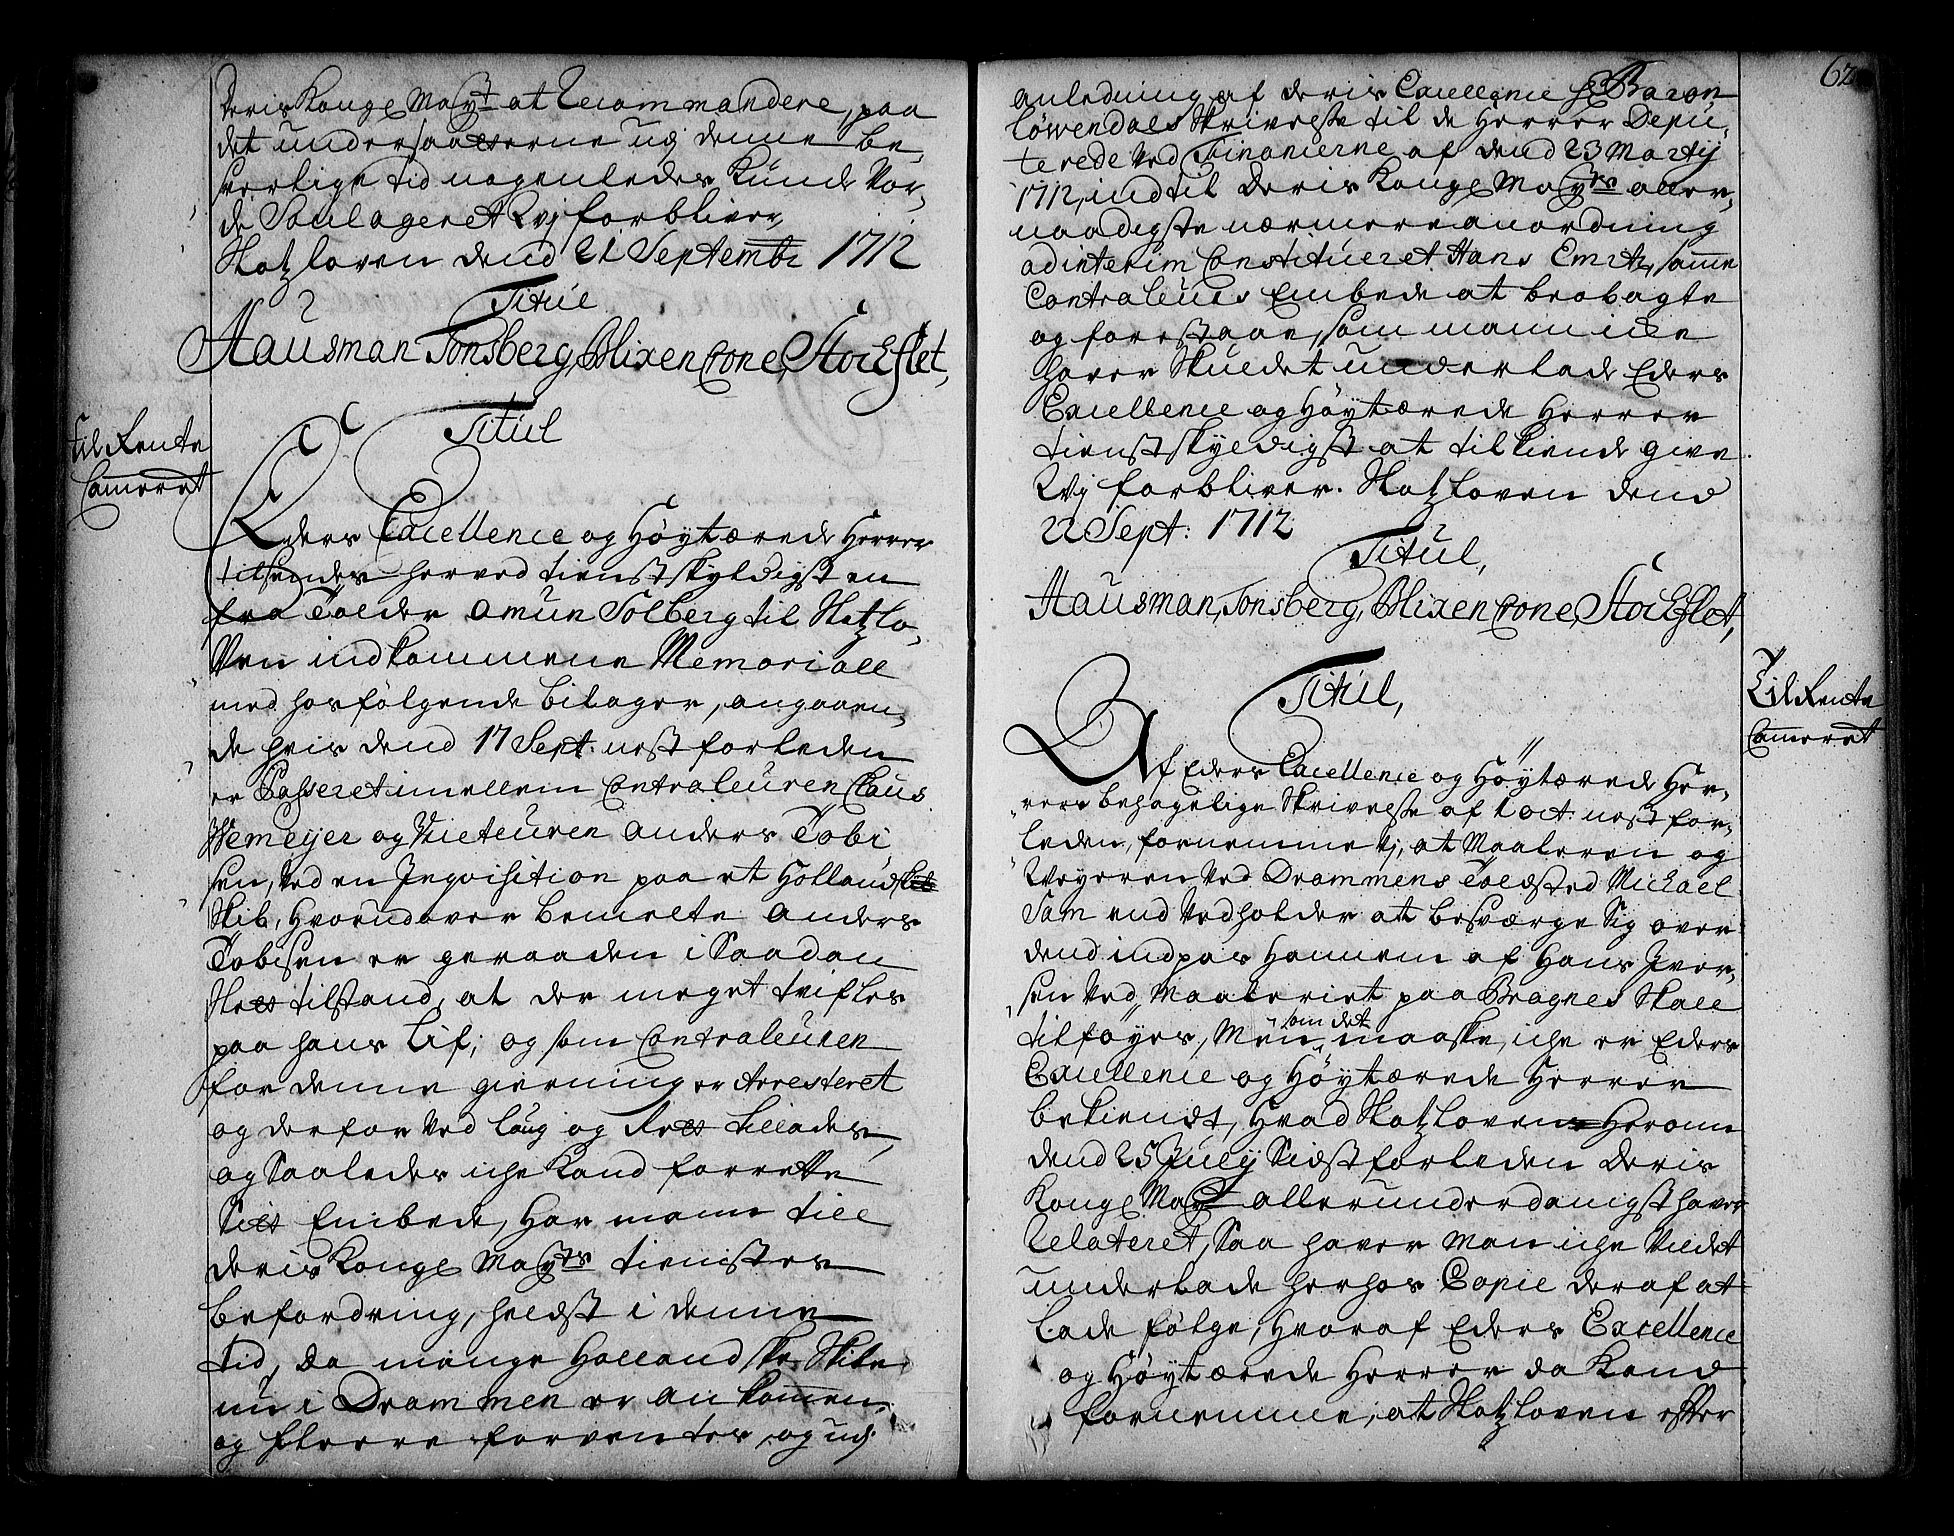 Deris Kongel Mayt at Recommandere, paa
det undersaatterne udj denne be-
sverlige tid nogenledes Kunde Vor-
de Soulageret Vj forbliver,
Slotzloven dend 21 Septembr 1712
Titul
Hausman Tonsberg, Blixencrone, Stockflet,
Til Rente
Cameret
Titul
Eders Excellence og Höytærede Herrer
tilsendes herved tienstskyldigst en
fra Tolder Amun Solberg til Slotzlo-
ven indkommene Memoriall
med hosfölgende bilager, angaaen-
de hvis dend 17 Sept: nest forleden
er Passeret imellem Contraleuren Claus
Wemeyer og Visteuren Anders Tobi-
sen, Ved en Inqvisition paa et Hollandsk
Skib, Hvorudover bemelte Anders
Tobisen er geraaden i Saadan
Slett tilstand, at der meget tvifles
paa hans Lif; og som Contraleuren
for denne gierning er Arresteret
og derfor Ved laug og Rett tillades,
og Saaledes iche Kand forrette
Sitt Embede, Har mann till
Deris Kongel Mayts tienistes
befordring, heldst i denne
tid, da mange Hollandske Skibe
nu i Drammen er ankommen,
og fleere forventes, og udj
62
anledning af deris Excellence H Baron
Löwendals Skrivelse til de Herrer Depu-
terede Ved Financierne af dend 23 Martij
1712, indtil Deris Kongel Mayts aller-
naadigste nærmere anordning
ad interim Constitueret Hans Emitz, samme
Contraleurs Embede at beobagte
og forestaae, som mann icke
haver Skuldet underlade Eders
Excellence og Höytærede Herrer
tienstskyldigst at tilkiende give
Vj forbliver. Slotzloven dend
22 Sept: 1712
Titul,
Hausman, Tonsberg, Blixencrone, Stockflet,
Til Rente
Cameret
Titul,
Af Eders Excellence og Höytærede Her-
rers behagelige Skrivelse af 1 oct: nest for-
leden, fornemme Vj, at Maaleren og
Veyeren Ved Drammens Toldsted Michael
Sam end Vedholder at besværge Sig over
dend indpas Hannem af Hans Iver-
sen Ved Maaleriet paa Bragnes Skall
tilföyes, Men som det maaske iche er Eders
Excellence og Höytærede Herrer
bekiendt, Hvad Slotzloven Herom
dend 25 July Sidst forleden Deris
Kongel Mayt allerunderdanigst haver
Relateret, Saa haver Man iche Vildet
underlade herhos Copie deraf at
lade fölge, Hvoraf Eders Excellence
og Höytærede Herrer da Kand
fornemme, at Slotzloven effter